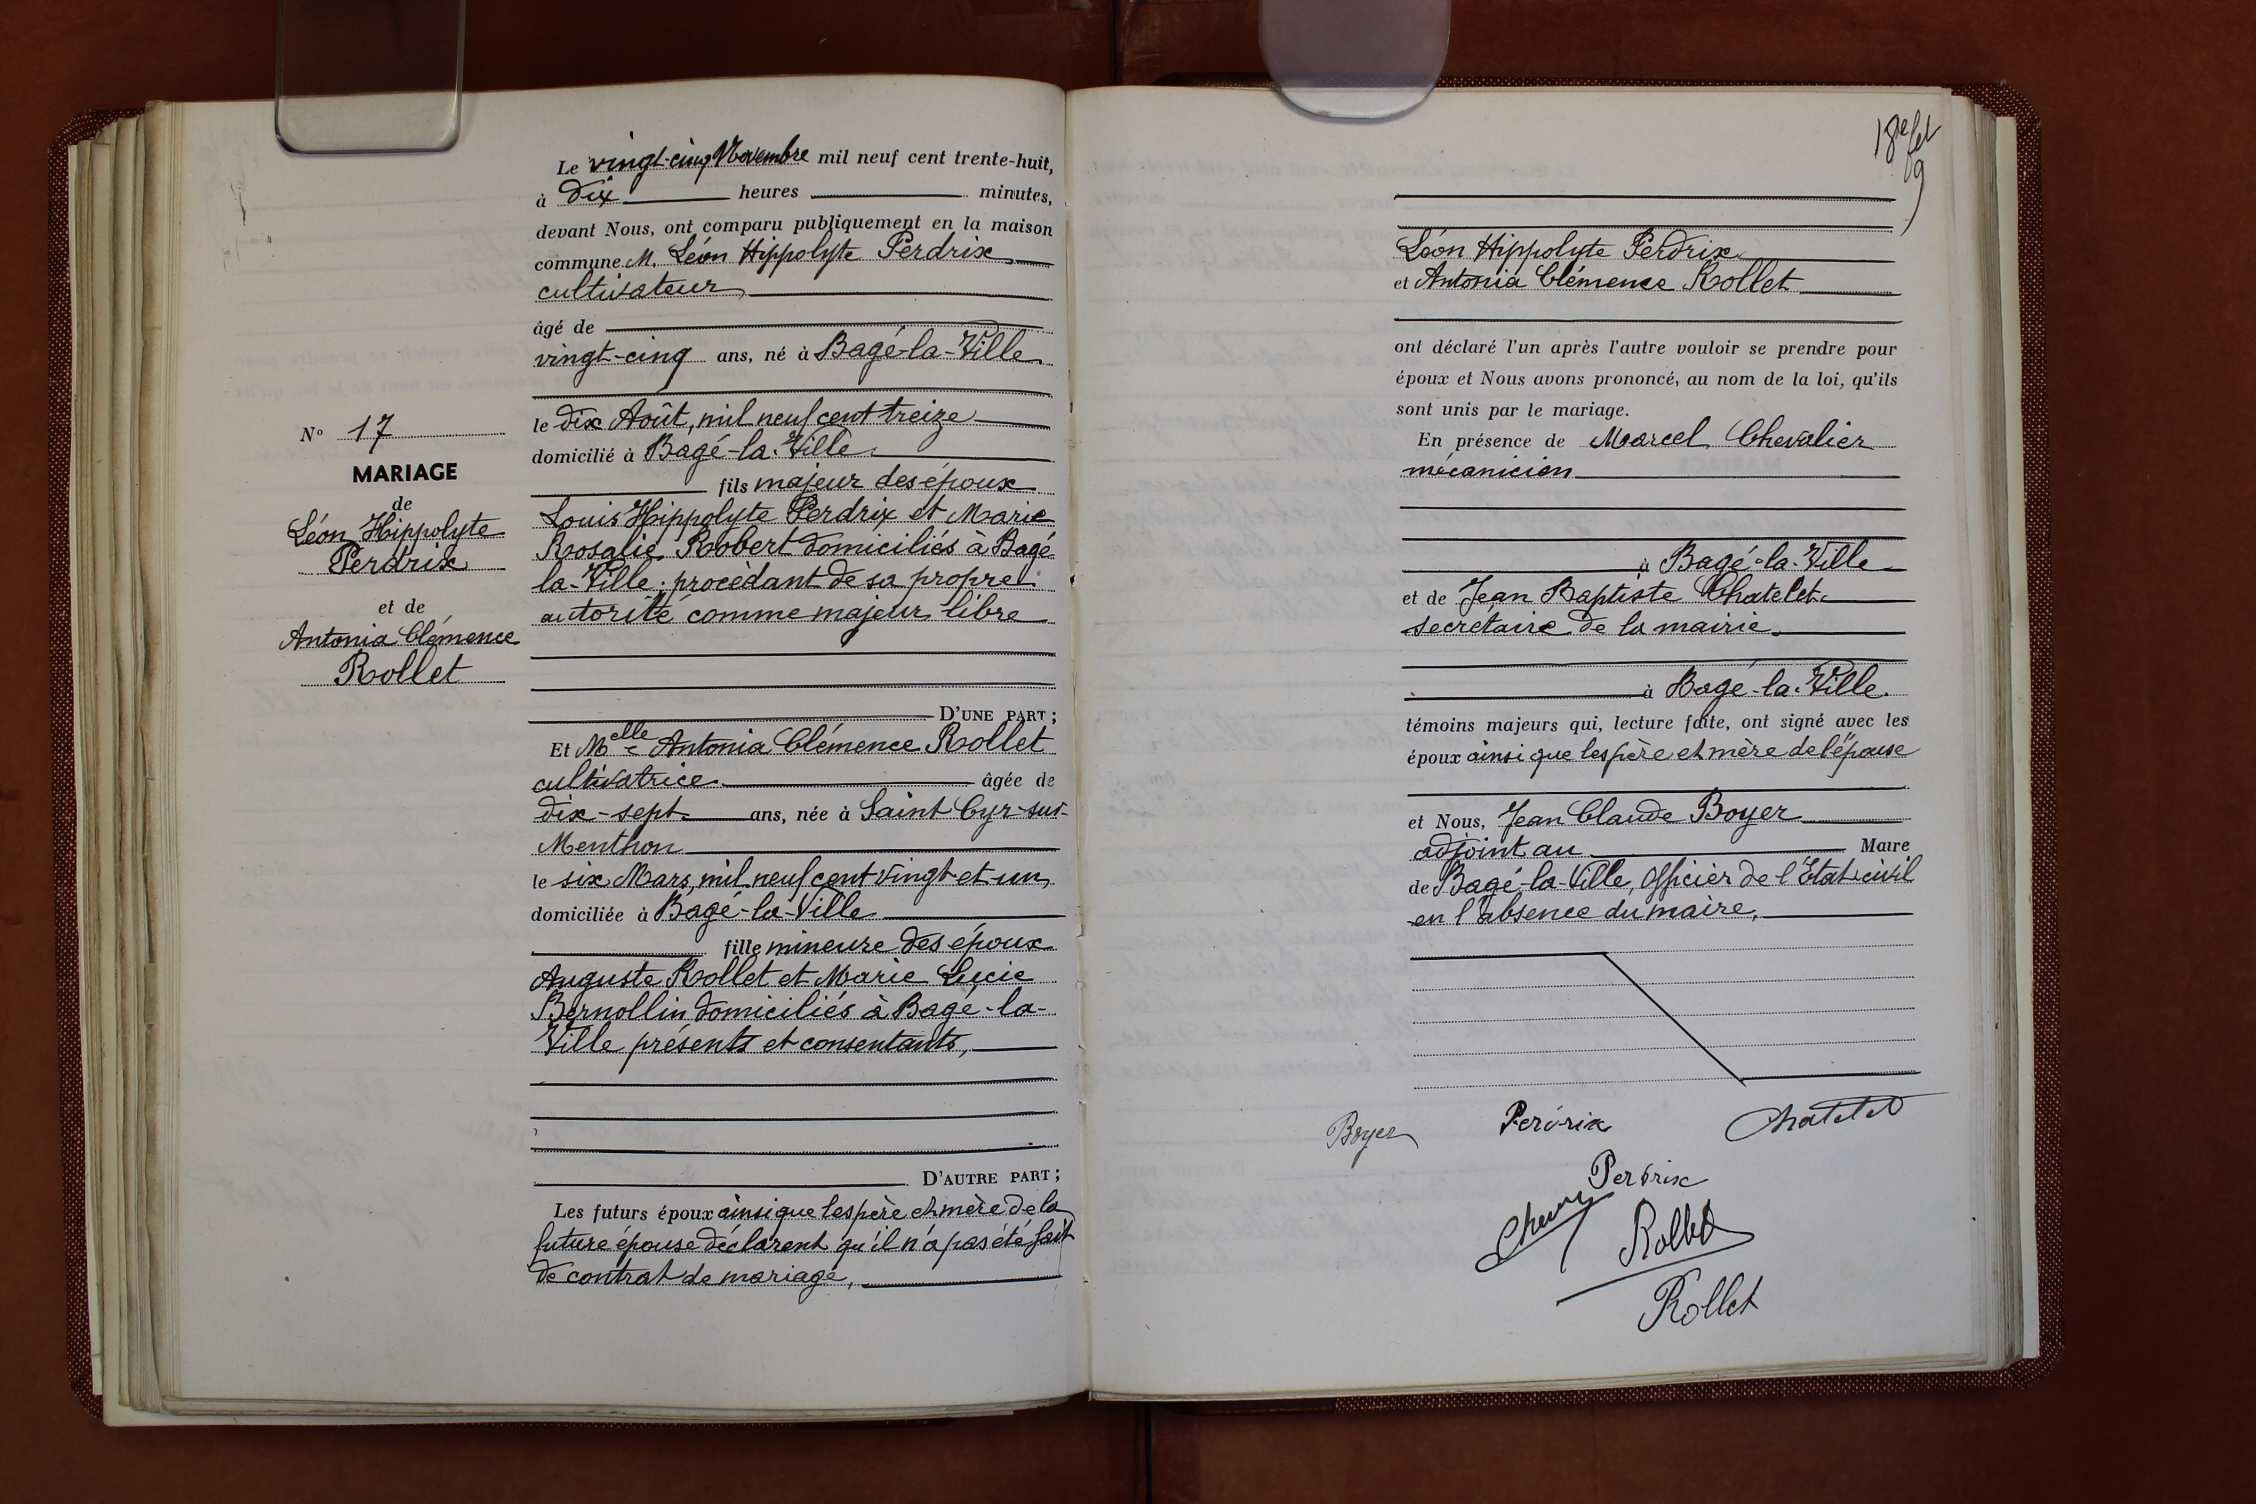 Le vingt-cinq Novembre mil neuf cent trente-huit,
à dix heures minutes,
devant Nous, ont comparu publiquement en la maison
commune M. Léon Hippolyte Perdrix
cultivateur
âgé de
vingt-cinq ans, né à Bagé-la-Ville
le dix Août, mil neuf cent treize
domicilié à Bagé-la-Ville
fils majeur des époux
Louis Hippolyte Perdrix et Marie
Rosalie Robert domiciliés à Bagé
la-Ville; procèdant de sa propre
autorité comme majeur libre
D'UNE PART;
Et Melle Antonia Clémence Rollet
cultivatrice âgée de
dix-sept ans, née à Saint Cyr-sur-
Menthon
le six Mars, mil neuf cent vingt et un,
domiciliée à Bagé-la-Ville
fille mineure des époux
Auguste Rollet et Marie Lucie
Bernollin domiciliés à Bagé-la-
Ville présents et consentants,
D'AUTRE PART;
Les futurs époux ainsi que les père et mère de la
future épouse déclarent qu'il n'a pas été fait
de contrat de mariage,
No 17
MARIAGE
de
Léon Hippolyte
Perdrix
et de
Antonia Clémence
Rollet
18e fet
Léon Hippolyte Perdrix
et Antonia Clémence Rollet
ont déclaré l'un après l'autre vouloir se prendre pour
époux et Nous avons prononcé, au nom de la loi, qu'ils
sont unis par le mariage.
En présence de Marcel Chevalier
mécanicien
à Bagé-la-Ville
et de Jean Baptiste Chatelet
secrétaire de la mairie
à Bagé-la-Ville.
témoins majeurs qui, lecture faite, ont signé avec les
époux ainsi que les père et mère de l'épouse
et Nous, Jean Claude Boyer
adjoint au Maire
de Bagé-la-Ville, officier de l'Etat-civil
en l'absence du maire,
Boyer
Perdrix
Chatelet
Perdrix
Rollet
Rollet